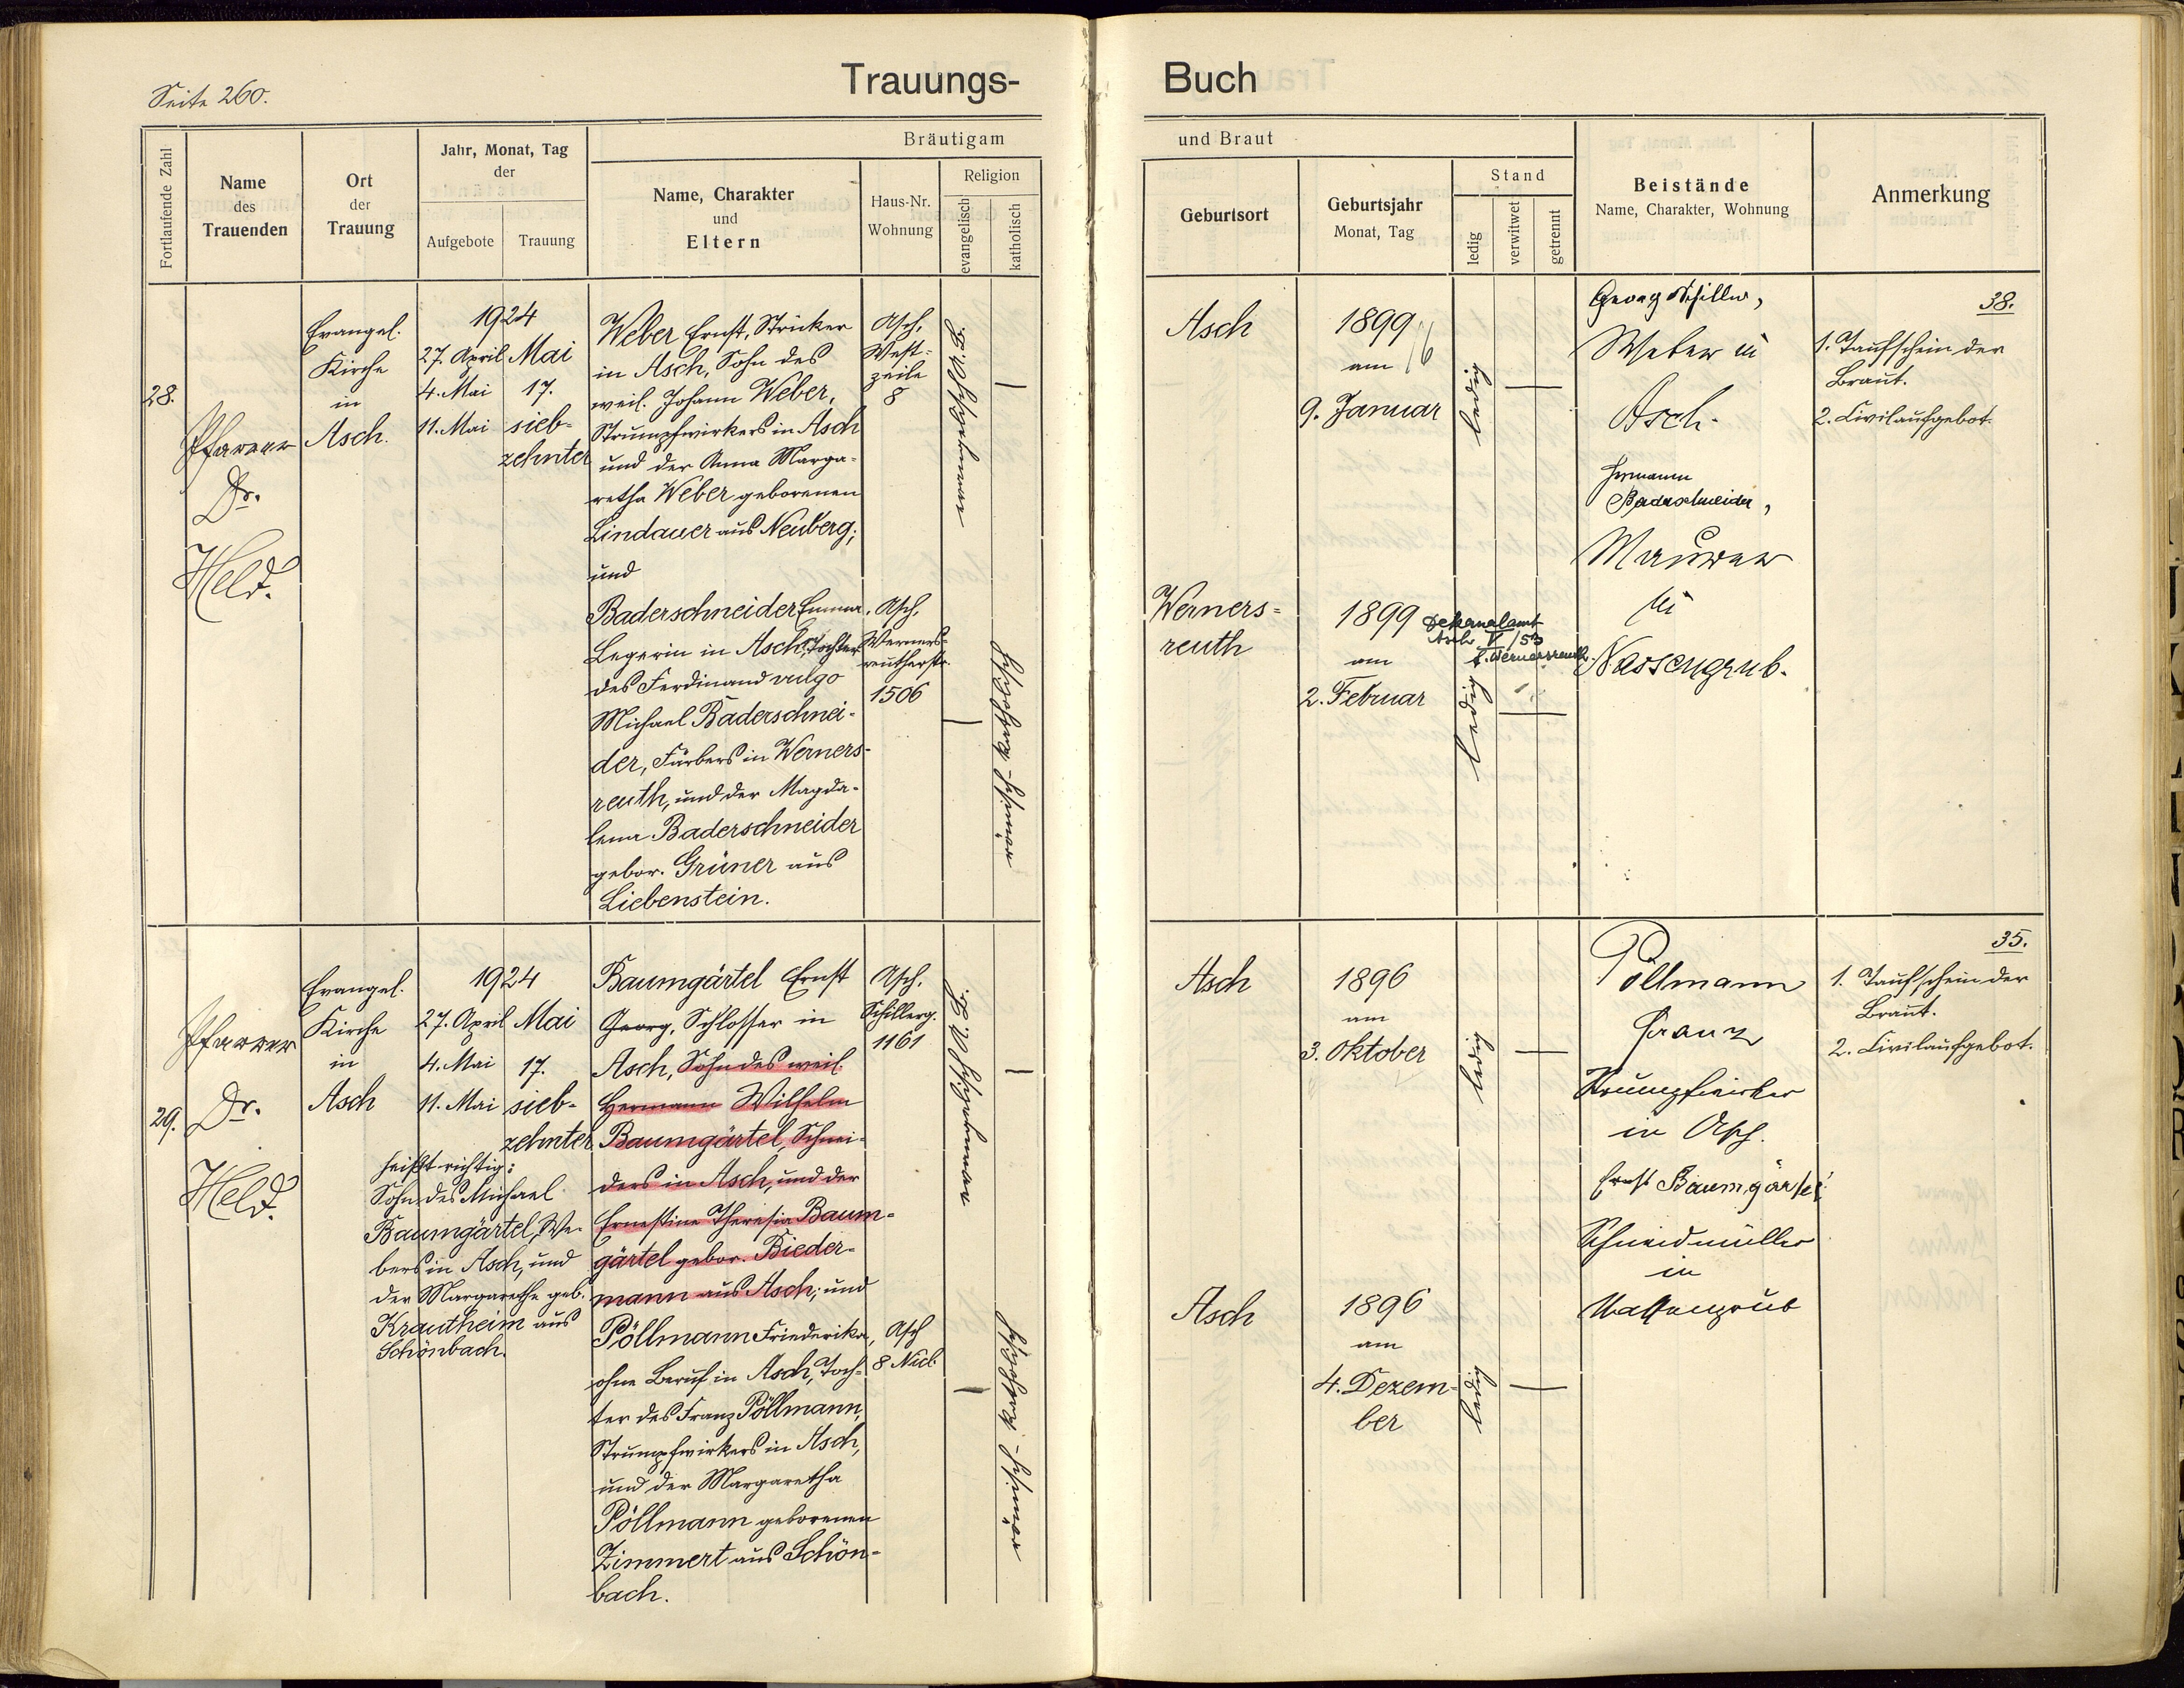 Seite 260.
Trauungs-
Fortlaufende Zahl
Name
des
Trauenden
Ort
der
Trauung
Jahr, Monat, Tag
der
Aufgebote
Trauung
Bräutigam
Name, Charakter
und
Eltern
Haus-Nr.
Wohnung
Religion
evangelisch
katholisch
28.
Pfarrer
Dr.
Held.
Evangel.
Kirche
in
Asch.
1924
27. April
4. Mai
11. Mai
Mai
17.
sieb-
zehnter
Weber Ernst, Stricker
in Asch, Sohn des
weil. Johann Weber,
Strumpfwirkers in Asch
und der Anna Marga-
retha Weber geborenen
Lindauer aus Neuberg;
und
Baderschneider Emma,
Legerin in Asch, Tochter
des Ferdinand vulgo
Michael Baderschnei-
der, Färbers in Werners-
reuth, und der Magda-
lena Baderschneider
gebor. Grüner aus
Liebenstein.
Asch,
West-
zeile
8
Asch,
Werners-
reutherstr.
1506
römisch-katholisch
29.
Pfarrer
Dr.
Held.
Evangel.
Kirche
in
Asch
1924
27. April
4. Mai
11. Mai
Mai
17.
sieb-
zehnter
heißt richtig:
Sohn des Michael
Baumgärtel, We-
bers in Asch, und
der Margarethe geb.
Krautheim aus
Schönbach.
Baumgärtel Ernst
Georg, Schlosser in
Asch, Sohn des weil.
Hermann Wilhelm
Baumgärtel, Schnei-
ders in Asch, und der
Ernestine Theresia Baum-
gärtel gebor. Bieder-
mann aus Asch; und
Pöllmann Friederika,
ohne Beruf in Asch, Toch-
ter des Franz Pöllmann,
Strumpfwirkers in Asch,
und der Margaretha
Pöllmann geborenen
Zimmert aus Schön-
bach.
Asch,
Schillerg.
1161
Asch
8 Nicl.
römisch-katholisch
Buch
und Braut
Geburtsort
Geburtsjahr
Monat, Tag
Stand
ledig
verwitwet
getrennt
Beistände
Name, Charakter, Wohnung
Anmerkung
Asch
1899
am
9. Januar
16
ledig
Georg Schiller,
Weber in
Asch.
Hermann
Baderschneider,
Maurer
in
Nassengrub.
38.
1. Taufschein der
Braut.
2. Civilaufgebot.
Werners-
reuth
1899
am
2. Februar
Dekanalamt
Asch V/53
f. Wernersreuth.
ledig
Asch
1896
am
3. Oktober
ledig
Pöllmann
Franz
Strumpfwirker
in Asch.
Ernst Baumgärtel
Schneidmüller
in
Nassengrub
35.
1. Taufschein der
Braut.
2. Civilaufgebot.
Asch
1896
am
4. Dezem-
ber
ledig